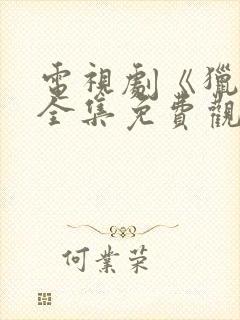 電視劇《獵
全集免費觀
何業荣